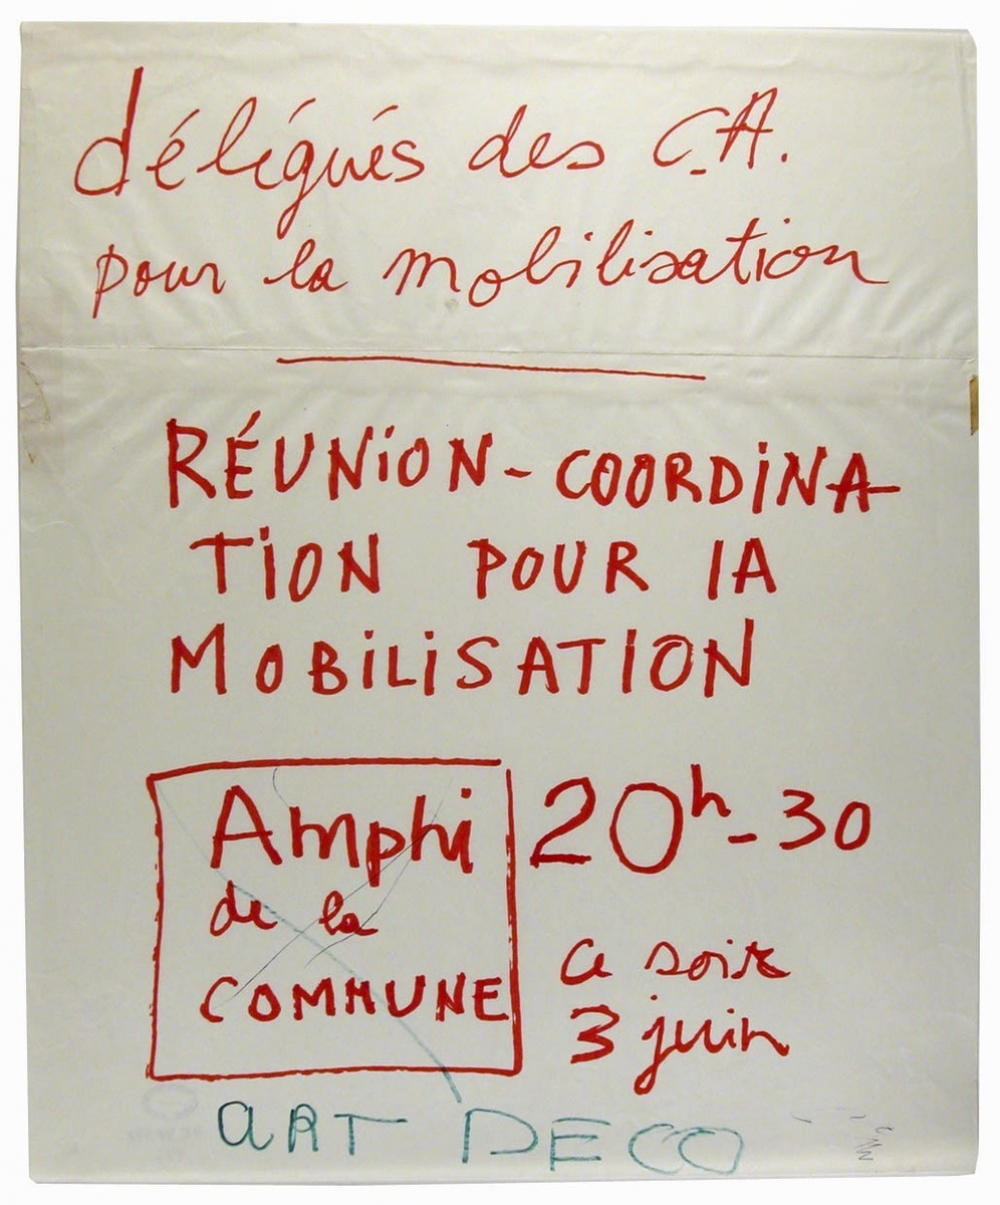 délégués des C.A.
pour la mobilisation
RÉUNION-COORDINA-
TION POUR LA
MOBILISATION
Amphi
de la
COMMUNE
20h-30
Ce soir
3 juin
ART DECO